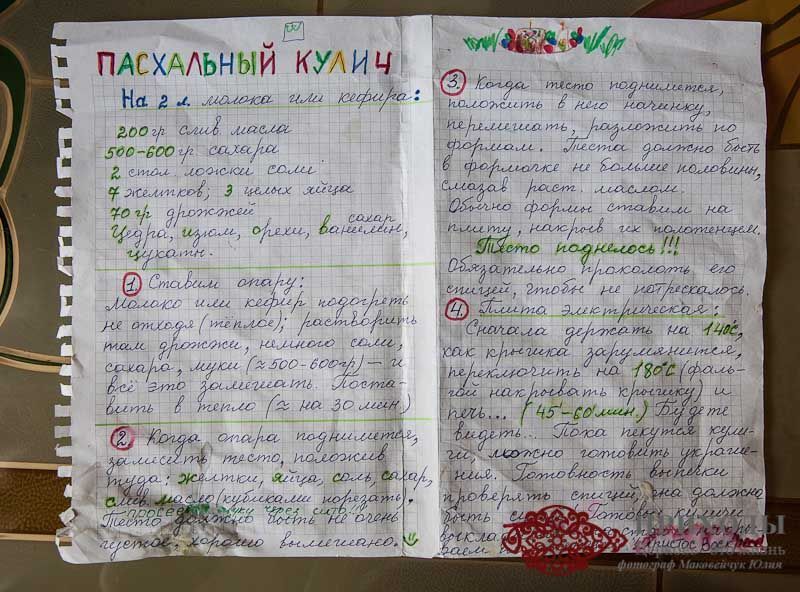 ПАСХАЛЬНЫЙ КУЛИЧ
На 2 л. молока или кефира:
200 гр слив масла
500-600 гр. сахара
2 стол. ложки соли
7 желтков; 3 целых яйца
70 гр дрожжей
сахар
Цедра, изюм, орехи, ванилин,
цукаты.
1. Ставим опару:
Молоко или кефир подогреть
не отходя (тёплое); растворить
там дрожжи, немного соли,
сахара, муки (≈500-600гр) — и
всё это замешать. Поста-
вить в тепло (≈ на 30 мин)
2. Когда опара поднимется,
замесить тесто, положив
туда: желтки, яйца, соль, сахар,
слив. масло (кубиками порезать).
муки через сито
Тесто должно быть не очень
густое, хорошо вымешано.
3. Когда тесто поднимется,
положить в него начинку,
перемешать, разложить по
формам. Теста должно быть
в формочке не больше половины,
смазав раст. маслом.
Обычно формы ставим на
плиту, накрыв их полотенцем.
Тесто поднелось!!!
Обязательно проколоть его
спицей, чтобы не потрескалось.
4. Плита электрическая:
Сначала держать на 140°С,
как крышка зарумянится,
переключить на 180°С (фоль-
гой накрывать крышку) и
печь... (45-60 мин.) Будете
видеть... Пока пекутся кули-
чи, можно готовить украше-
ния. Готовность выпечки
проверять спицей, она должна
быть Готовые куличи
выклад
ваем Христос Воскрес
фотограф Маковейчук Юлия